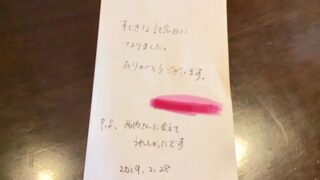 すてきな記念日に
なりました。
ありがとうございます。
P.S. 西内さんに会えて
うれしかったです
2019.2.28